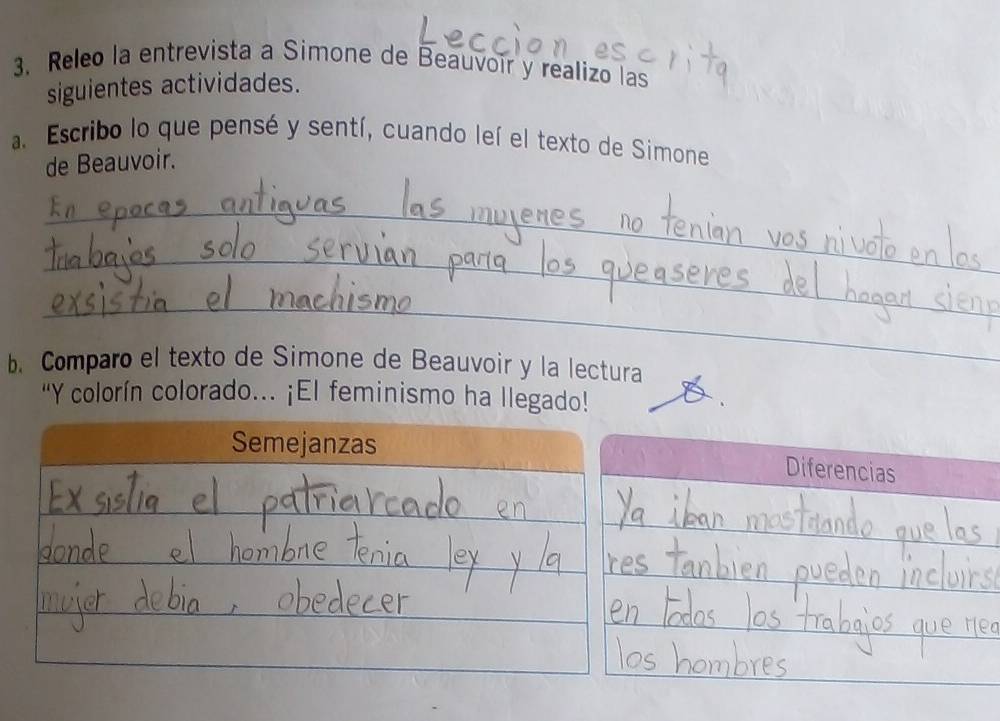 Leccion escrita
3. Releo la entrevista a Simone de Beauvoir y realizo las
siguientes actividades.
a. Escribo lo que pensé y sentí, cuando leí el texto de Simone
de Beauvoir.
En epocas antiguas las mujeres no tenian vos ni voto en los
trabajos solo servian para los queaseres del hogar siemp
exsistia el machismo
b. Comparo el texto de Simone de Beauvoir y la lectura
“Y colorín colorado... ¡El feminismo ha llegado!
Semejanzas
Exsistia el patriarcado en
donde el hombre tenia ley y la
mujer debia, obedecer
Diferencias
Ya iban mostrando que las
res tanbien pueden incluirse
en todos los trabajos que rea
los hombres